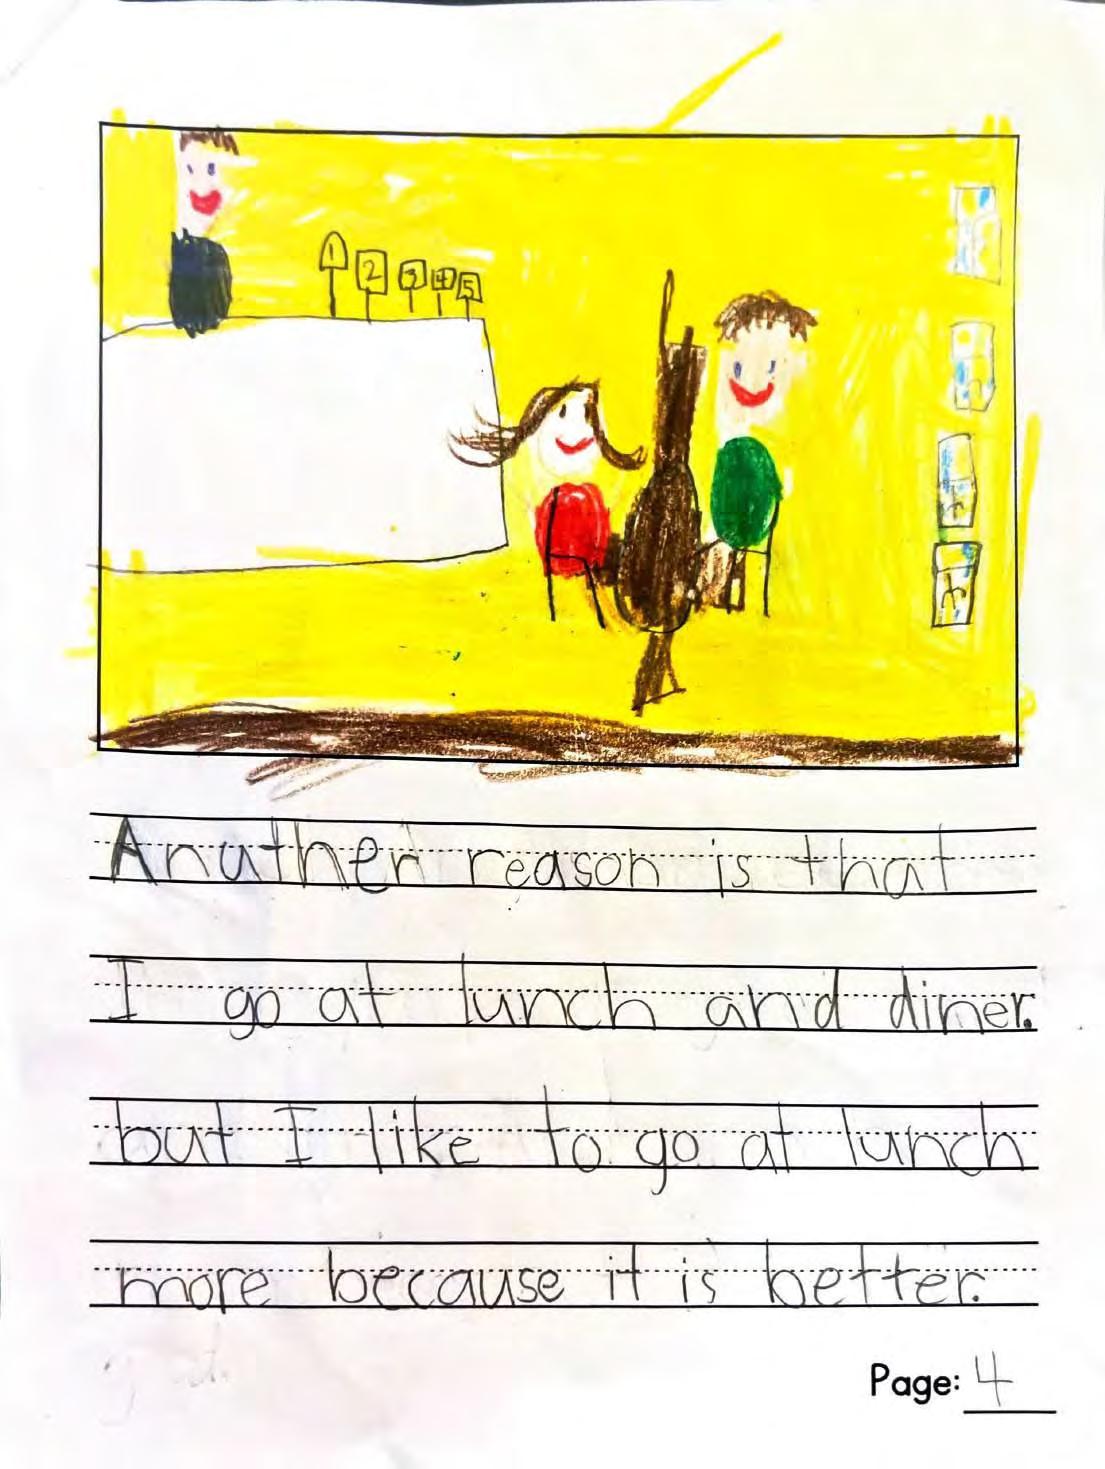 1
2
3
4
5
Anuther reason is that
I go at lunch and diner.
but I like to go at lunch
more because it is better.
Page: 4